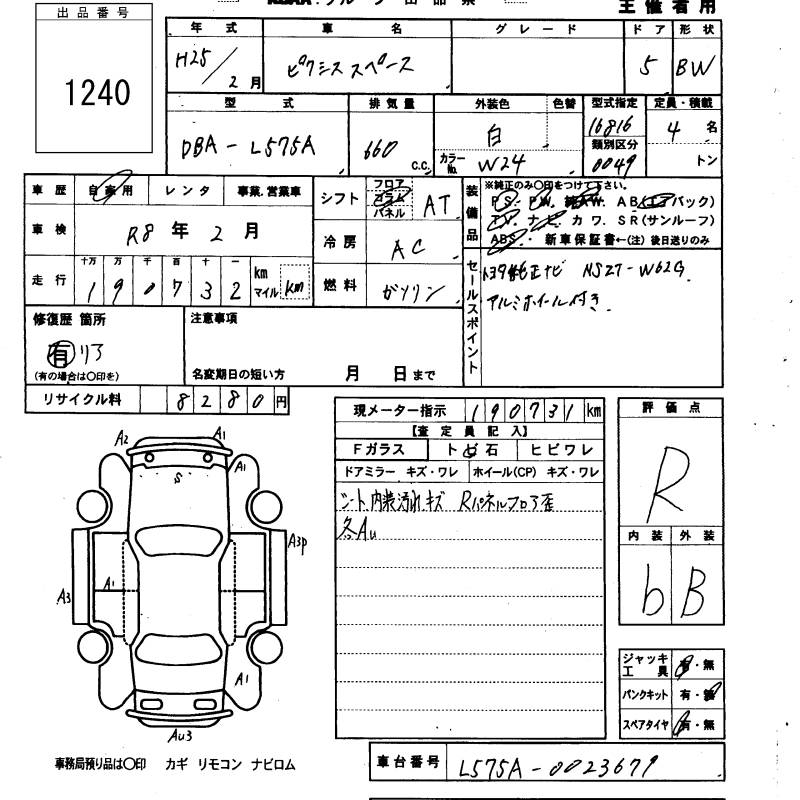 主催者用
出品番号
1240
年式 車名 グレード ドア 形状
H25/2月 ピクシススペース 5 BW
型式 排気量 外装色 色替 型式指定 定員・積載
DBA-L575A 660 C.C. 白 16816 4名
カラーNo. W24 類別区分 0049 トン
車歴 自家用 レンタ 事業.営業車
シフト フロア コラム パネル AT
装備品 ※純正のみ○印をつけて下さい。
PS・PW・純AW. AB(エアバック)
TV・ナビ・カワ. SR(サンルーフ)
ABS・新車保証書←(注)後日送りのみ
車検 R8年2月
冷房 AC
走行 十万 万 千 百 十 一 km マイル
190732 km
燃料 ガソリン
セールスポイント
トヨタ純正ナビ NSZT-W62G
アルミホイール付き.
修復歴 箇所
有 リア
(有の場合は○印を)
注意事項
名変期日の短い方 月 日まで
リサイクル料 8280円
現メーター指示 190731km
【査定員記入】
Fガラス トビ石 ヒビワレ
ドアミラー キズ・ワレ ホイール(CP) キズ・ワレ
シート、内装汚れキズ Rパネルフロア歪
各Au
評価点
R
内装 外装
b B
A2 A1
A1
S
A3P
A1
A3
A1
Au3
ジャッキ工具 有・無
パンクキット 有・無
スペアタイヤ 有・無
事務局預り品は○印 カギ リモコン ナビロム
車台番号 L575A-0023679